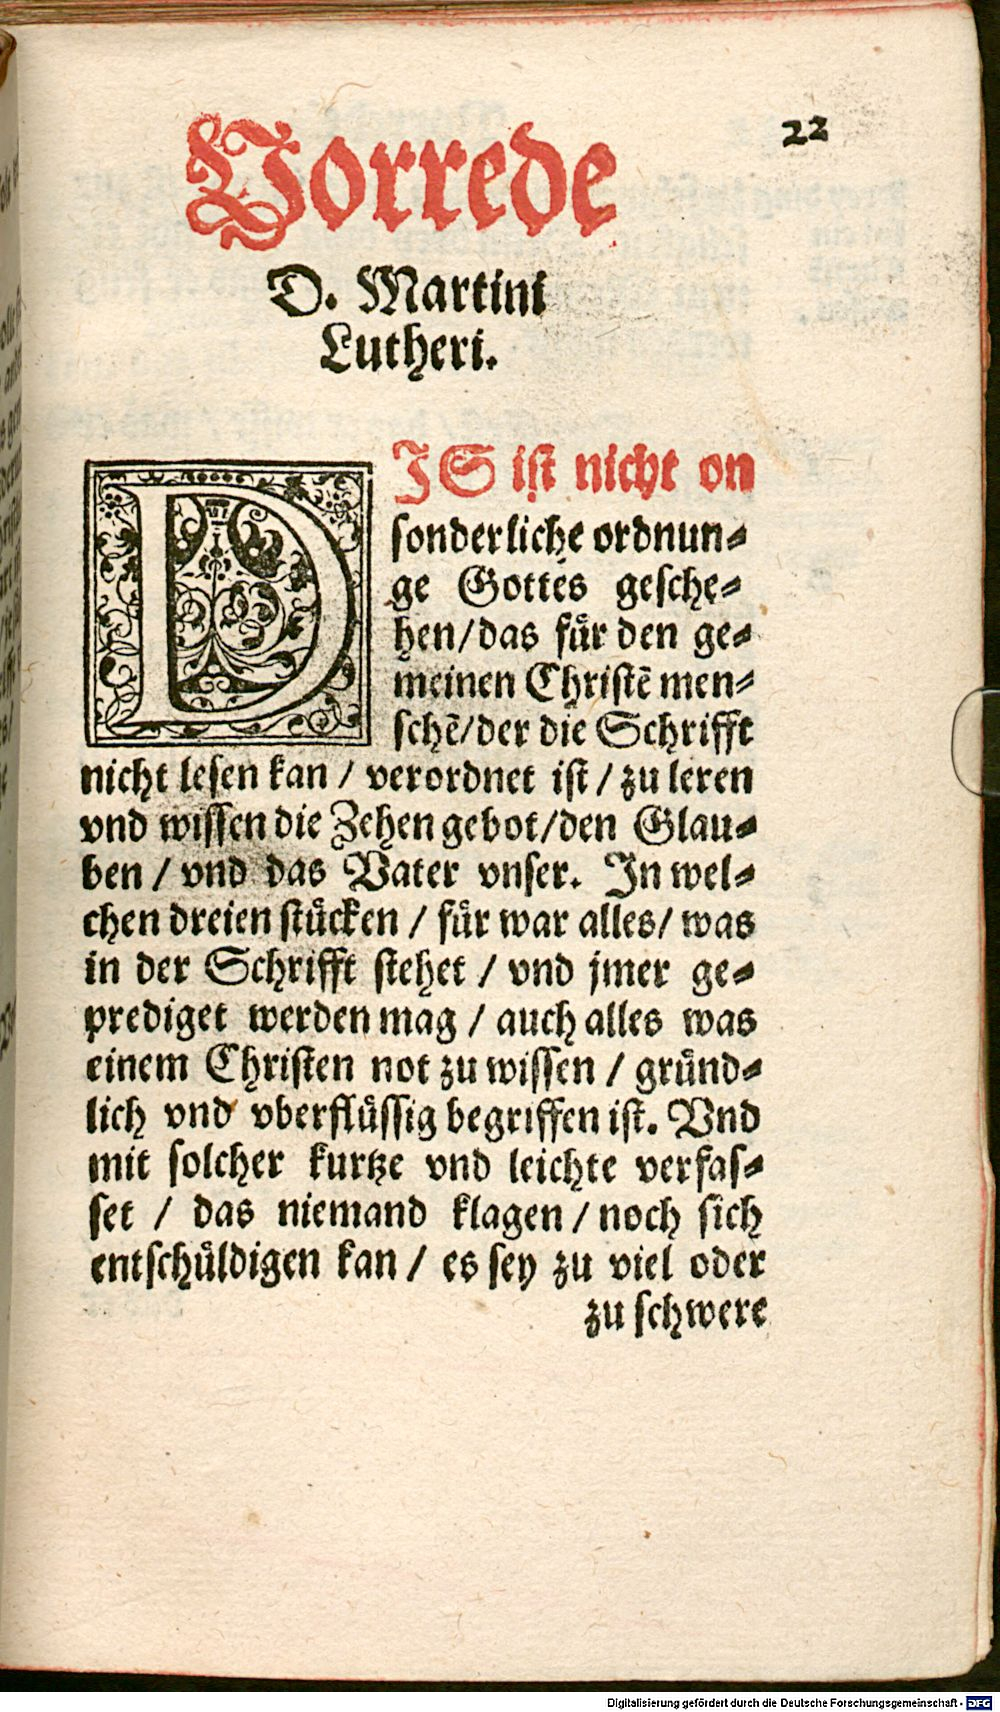 22
Vorrede
D. Martini
Lutheri.
DIS ist nicht on
sonderliche ordnun⸗
ge Gottes gesche⸗
hen/das fuͤr den ge⸗
meinen Christē men⸗
schē/der die Schrifft
nicht lesen kan / verordnet ist / zu leren
vnd wissen die Zehen gebot/den Glau⸗
ben / vnd das Vater vnser. In wel⸗
chen dreien stuͤcken / fuͤr war alles/ was
in der Schrifft stehet / vnd jmer ge⸗
prediget werden mag / auch alles was
einem Christen not zu wissen / gruͤnd⸗
lich vnd vberfluͤssig begriffen ist. Vnd
mit solcher kurtze vnd leichte verfas⸗
set / das niemand klagen / noch sich
entschuͤldigen kan / es sey zu viel oder
zu schwere
Digitalisierung gefördert durch die Deutsche Forschungsgemeinschaft - DFG